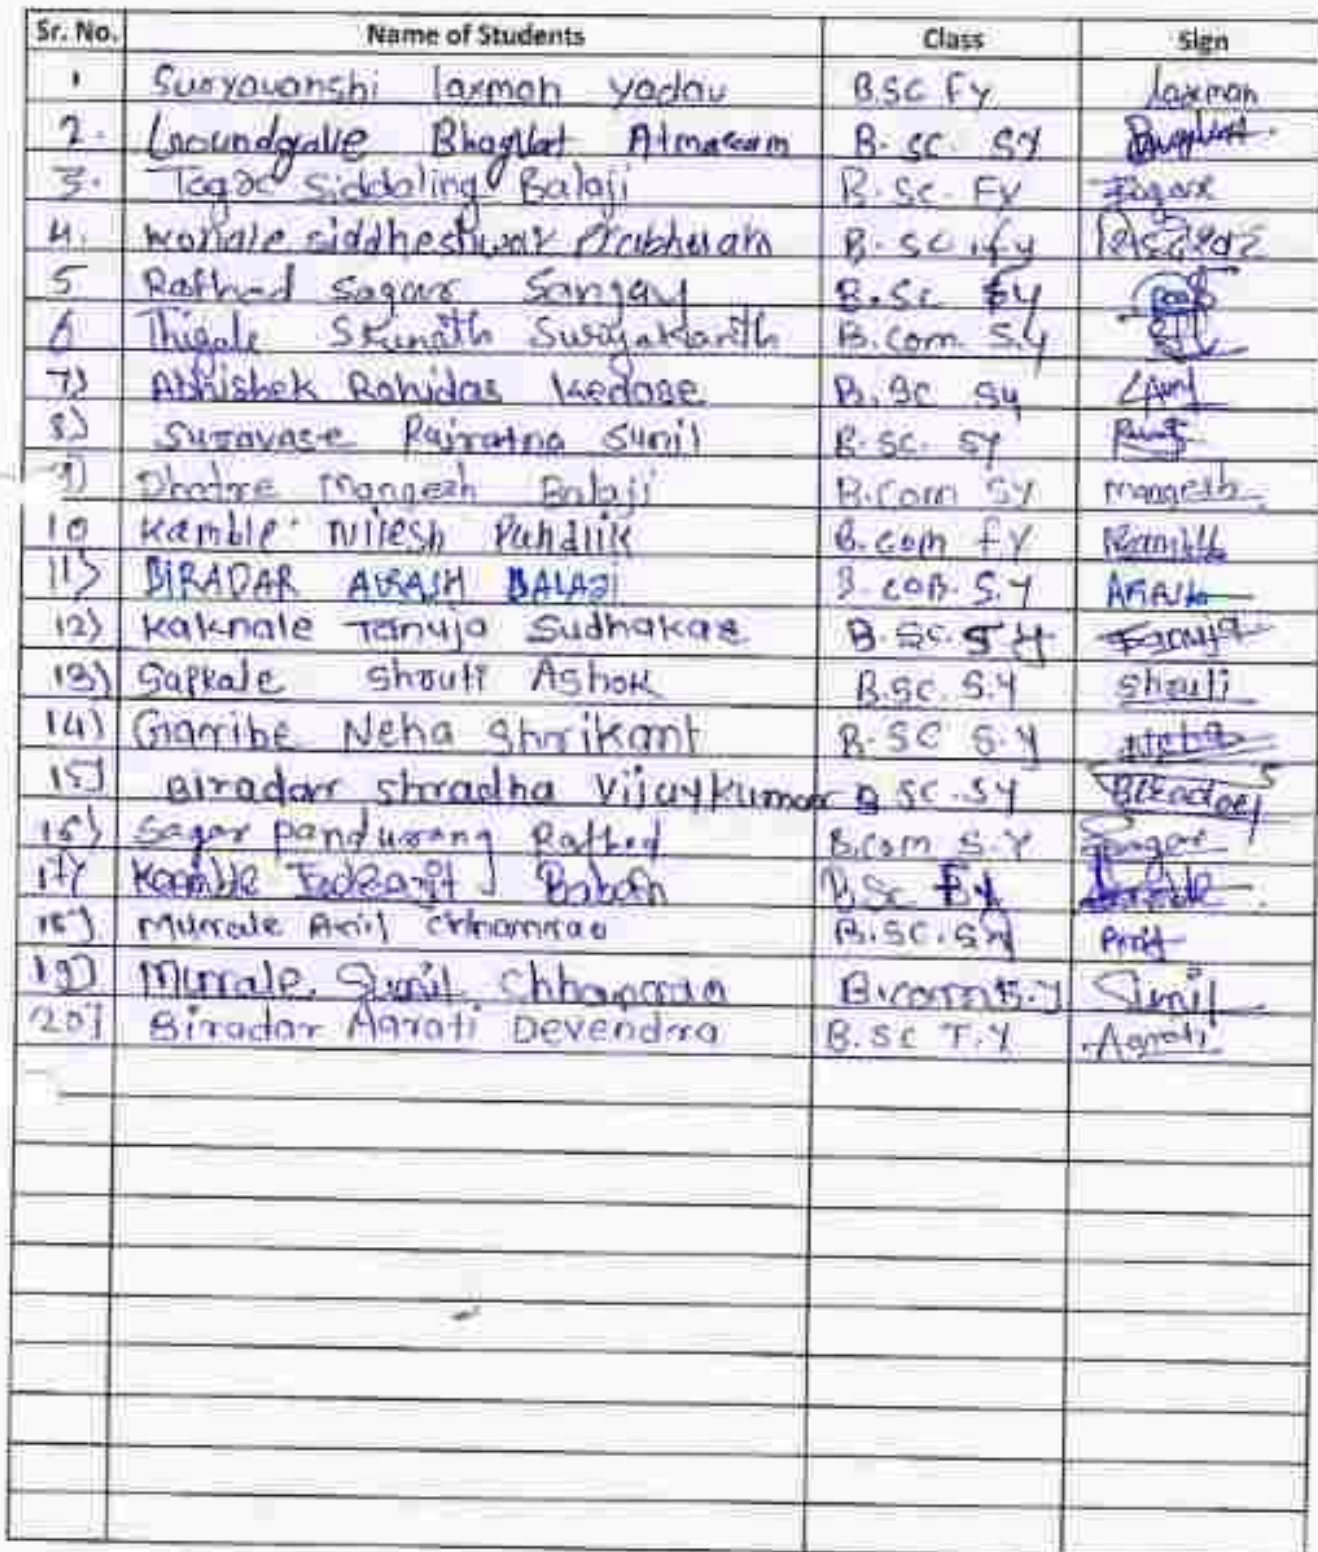 Sr. No. Name of Students Class Sign
1 Suryavanshi laxman yadav B.SC FY laxman
2. Bhagwat Atmaram B. SC. SY
3. Siddaling Balaji B. SC. FY
4. siddheshwar Prabhuram B. SC. fy
5 Rathod Sagar Sanjay B.Sc
6 Thigale Suryakanth B.Com. S.Y
7) Abhishek Rohidas Kedase B.Sc Sy
8) Suravase Rajratna Sunil B.SC. SY
9) Dhotre Mangesh Balaji B.Com SY Mangesh
10 Kamble Nilesh Pundlik B.com FY Kamble
11) BIRADAR AKASH BALAJI B.com. S.Y AKASH
12) Kaknale Tanuja Sudhakar B.SC. S.Y Tanuja
13) Sapkale Shruti Ashok B.SC. S.Y Shruti
14) Garribe Neha Shrikant B.SC S.Y Neha
15) Biradar shradha Vijaykumar B.SC.SY
16) Sagar pandurang Rathod B.Com S.Y Sagar
17) Kamble B.Sc
18) Murrale Anil B.SC. SY Anil
19) Murrale Sunil B.com S.Y Sunil
20) Biradar Aarati Devendra B.SC T.Y Aarati